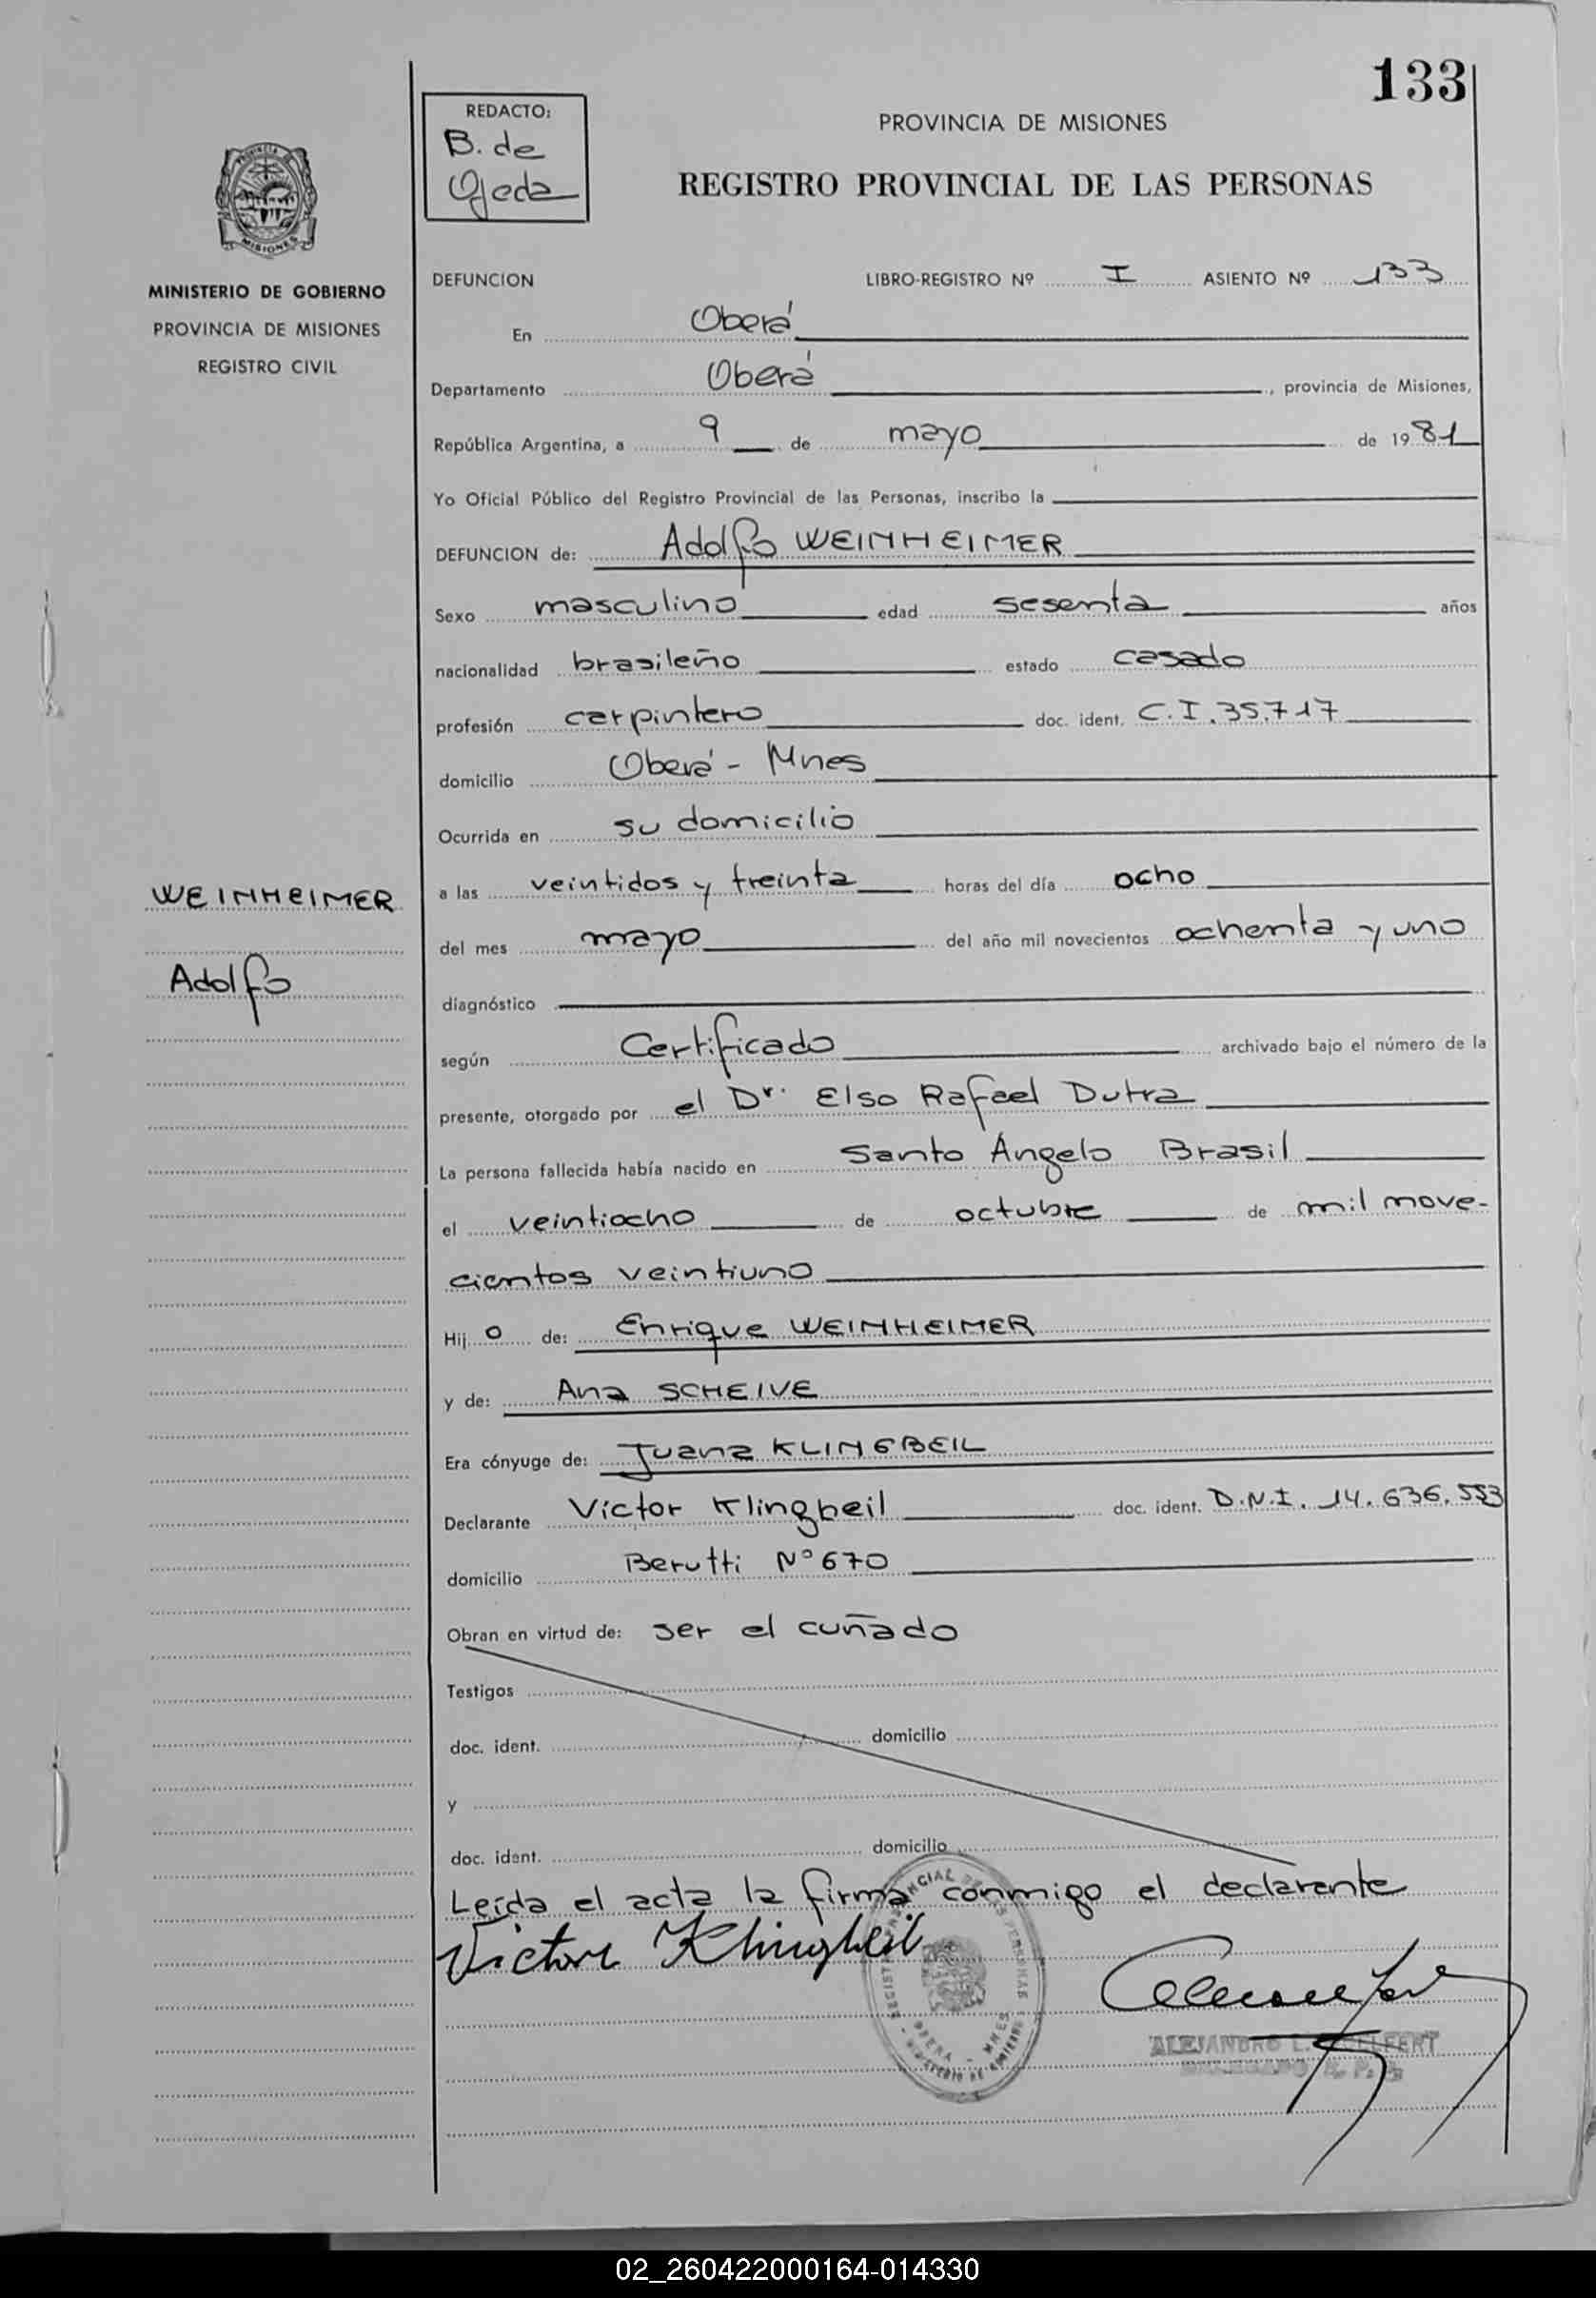 133
REDACTO:
B. de
Ojeda
PROVINCIA DE MISIONES
REGISTRO PROVINCIAL DE LAS PERSONAS
MISIONES
MINISTERIO DE GOBIERNO
PROVINCIA DE MISIONES
REGISTRO CIVIL
DEFUNCION LIBRO-REGISTRO Nº I ASIENTO Nº 133
En Oberá
Departamento Oberá, provincia de Misiones,
República Argentina, a 9 de mayo de 1981
Yo Oficial Público del Registro Provincial de las Personas, inscribo la
DEFUNCION de: Adolfo WEINHEIMER
Sexo masculino edad sesenta años
nacionalidad brasileño estado casado
profesión carpintero doc. ident. C.I.35.717
domicilio Oberá - Mnes
Ocurrida en su domicilio
WEINHEIMER
Adolfo
a las veintidos y treinta horas del día ocho
del mes mayo del año mil novecientos ochenta y uno
diagnóstico
según Certificado archivado bajo el número de la
presente, otorgado por el Dr. Elso Rafael Dutra
La persona fallecida había nacido en Santo Ángelo Brasil
el veintiocho de octubre de mil nove-
cientos veintiuno
Hijo de: Enrique WEINHEIMER
y de: Ana SCHEIVE
Era cónyuge de: Juana KLINGBEIL
Declarante Víctor Klingbeil doc. ident. D.N.I. 14.636.553
domicilio Berutti Nº 670
Obran en virtud de: ser el cuñado
Testigos
doc. ident. domicilio
y
doc. ident. domicilio
Leída el acta la firma conmigo el declarante
Victor Klingbeil
ALEJANDRO L.
02_260422000164-014330